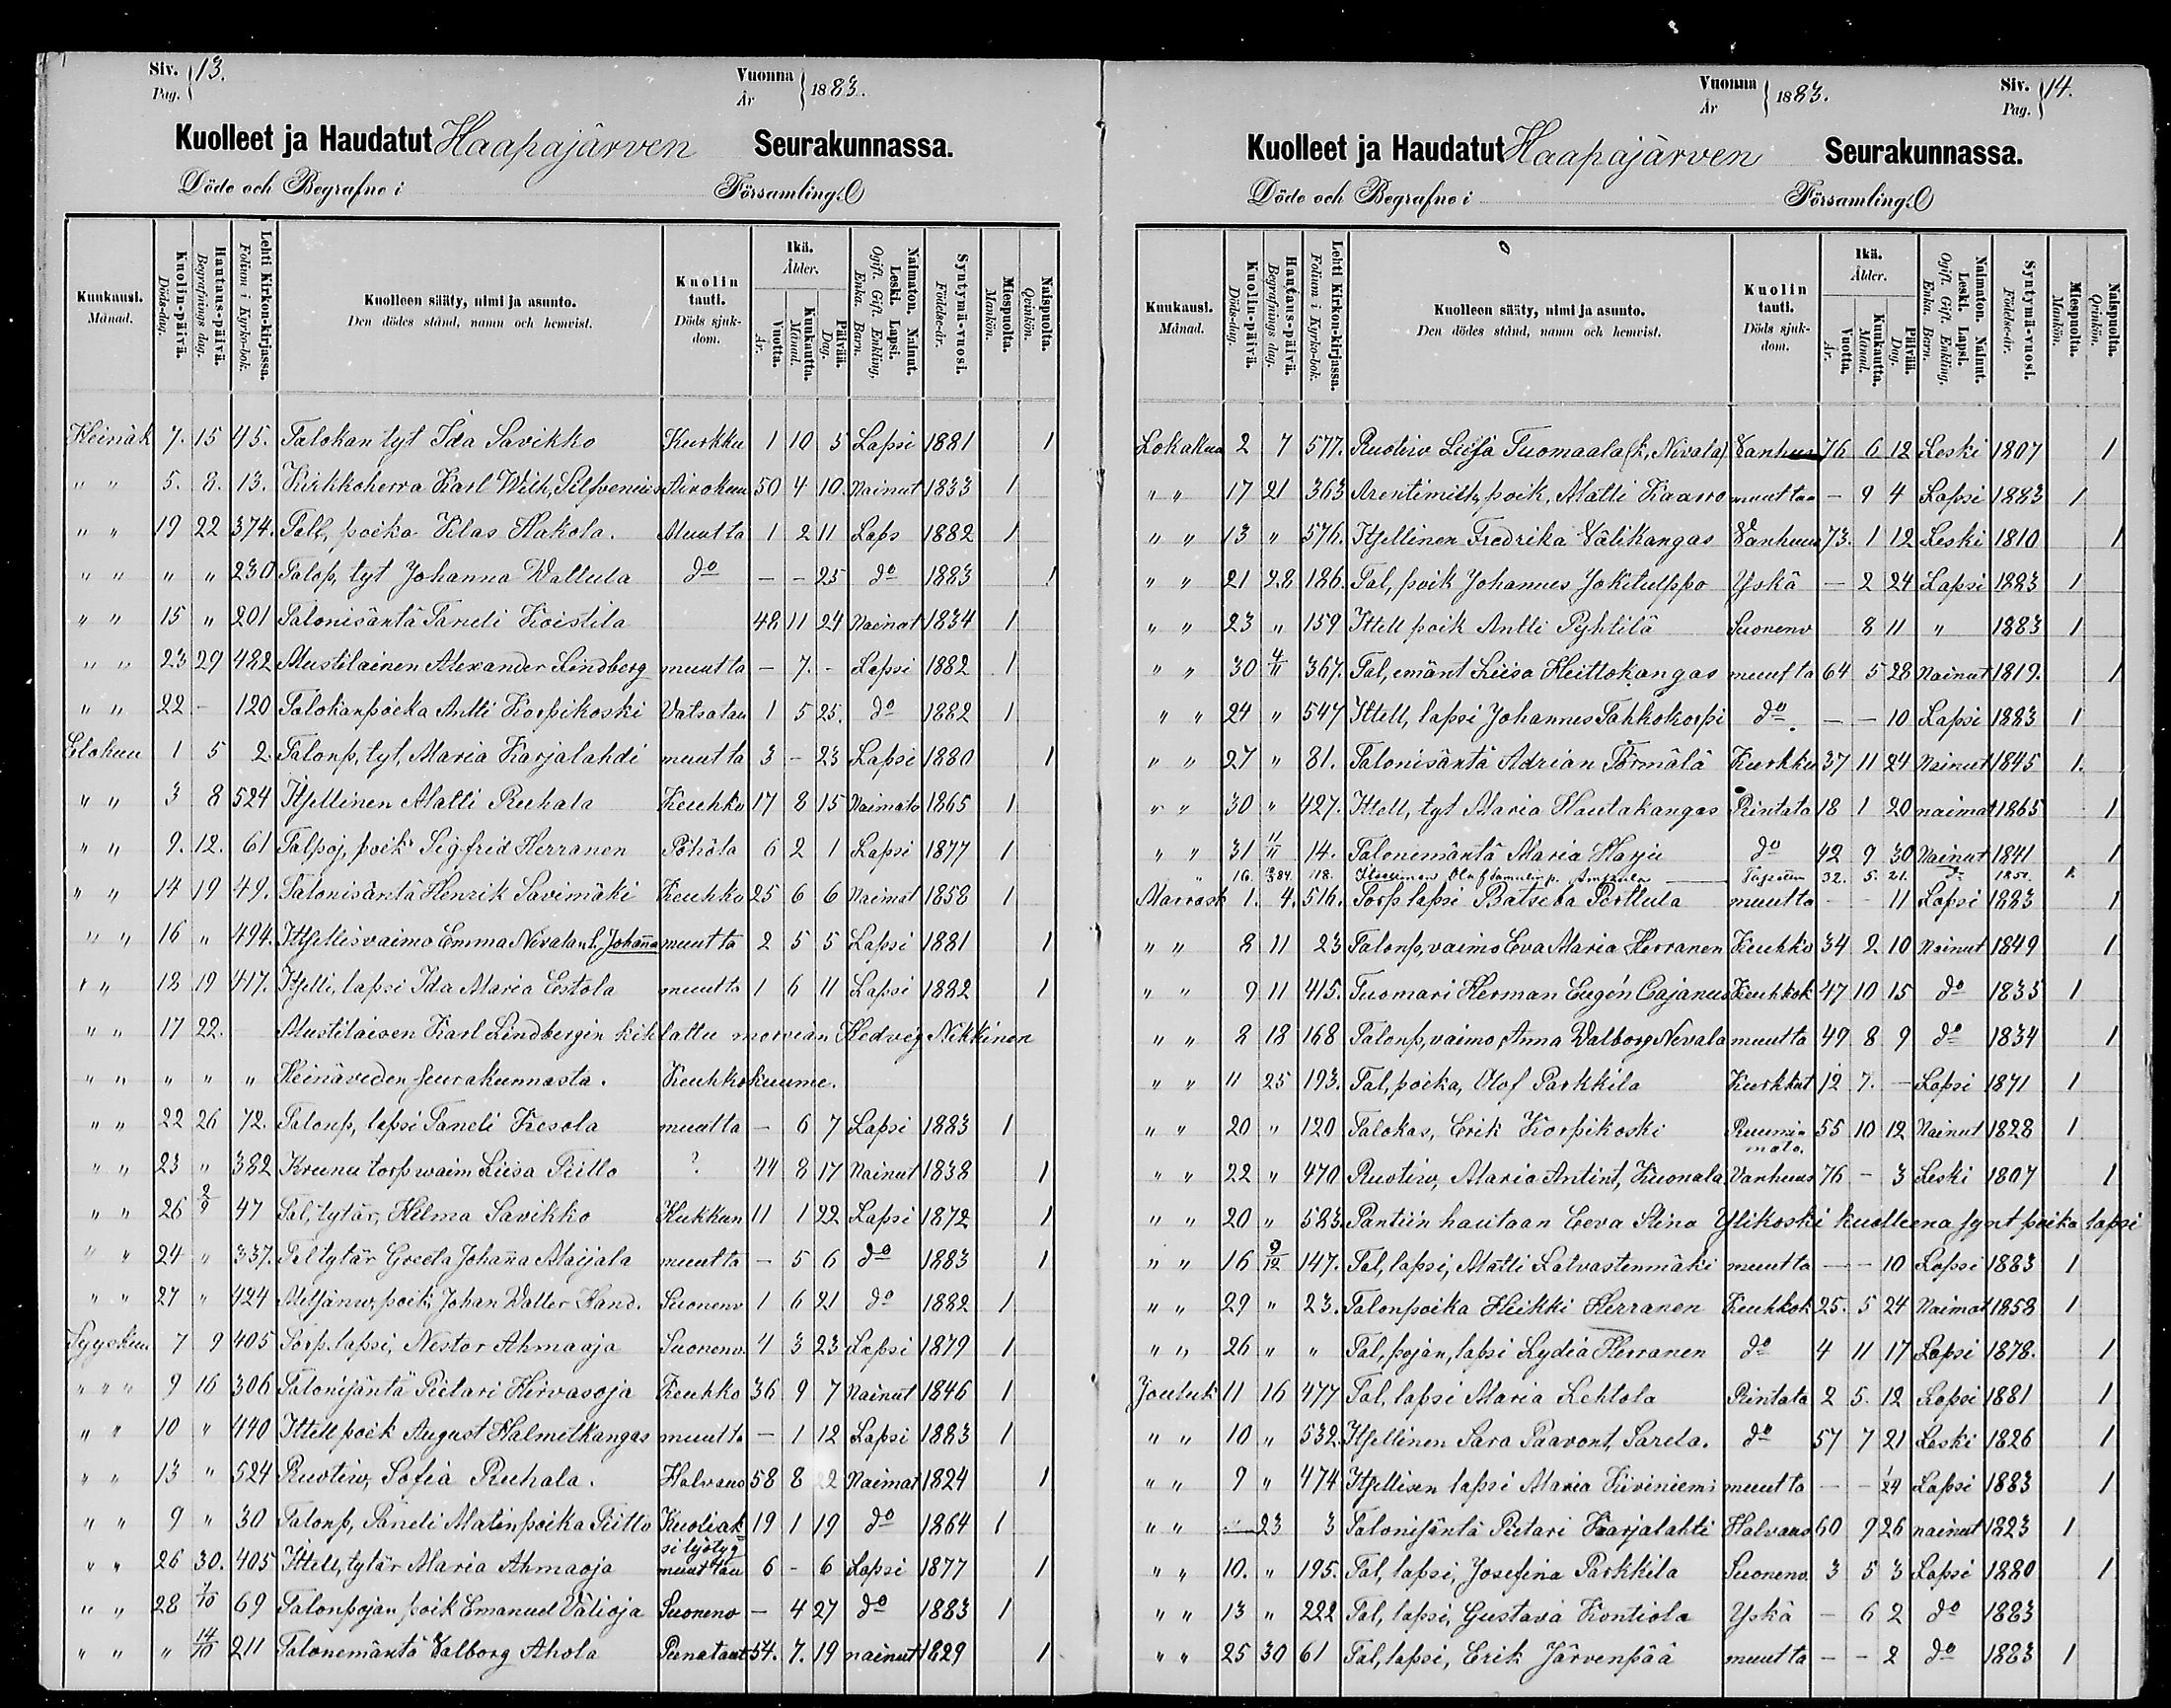 Siv. Pag. 13. Vuonna År 1883.
Kuolleet ja Haudatut Haapajärven Seurakunnassa.
Döde och Begrafne i Församling.
Kuukausi. Månad. Kuolin-päivä. Döds-dag. Hautaus-päivä. Begrafnings dag. Lehti Kirkon-kirjassa. Folium i Kyrko-bok. Kuolleen sääty, nimi ja asunto. Den dödes stånd, namn och hemvist. Kuolin tauti. Döds sjukdom. Ikä. Ålder. Vuotta. År. Kuukautta. Månad. Päivää. Dag. Naimaton. Nainut. Leski. Lapsi. Ogift. Gift. Enkling, Enka. Barn. Syntymä-vuosi. Födelse-år. Miespuolta. Mankön. Naispuolta. Qvinkön.
Heinäk 7. 15 45. Talokan tyt Ida Savikko Kurkku 1 10 5 Lapsi 1881 1
" " 5. 8. 13. Kirkkoherra Karl Wilh, Silfvenius Aivokuu 50 4 10. Nainut 1833 1
" " 19 22 374. Tall, poika Vilas Hakola. Muutta 1 2 11 Laps 1882 1
" " " " 230 Talop, tyt Johanna Wallula do - - 25 do 1883 1
" " 15 " 201 Talonisäntä Taneli Koistila 48 11 24 Nainut 1834 1
" " 23 29 482 Mustilainen Alexander Lindberg muutta - 7. - Lapsi 1882 1
" " 22 - 120 Talokanpoika Antti Korpikoski Vatsatau 1 5 25. do 1882 1
Elokuu 1 5 2 Talonp, tyt, Maria Karjalahdi muutta 3 - 23 Lapsi 1880 1
" " 3 8 524 Itsellinen Matti Ruhala Keuhko 17 8 15 Naimato 1865 1
" " 9. 12. 61 Talpoj, poik Sigfrid Herranen Pöhötä 6 2 1 Lapsi 1877 1
" " 14 19 49. Talonisäntä Henrik Savimäki Keuhko 25 6 6 Naimat 1858 1
" " 16 " 494. Itsellisvaimo Emma Nivalan l. Johanna muutta 2 5 5 Lapsi 1881 1
" " 18 19 417. Itselli, lapsi Ida Maria Estola muutta 1 6 11 Lapsi 1882 1
" " 17 22. Mustilaisen Karl Lindbergin kihlattu morsian Hedvig Nikkinen
" " " " " Heinäveden seurakunnasta. Keuhkokuume.
" " 22 26 72. Talonp, lapsi Taneli Kesola muutta - 6 7 Lapsi 1883 1
" " 23 " 382 Kruunu torp waim Liisa Tiitto ? 44 8 17 Nainut 1838 1
" " 26 2/9 47 Tal, tytär, Hilma Savikko Hukkun 11 1 22 Lapsi 1872 1
" " 24 " 337. Tal tytär Greeta Johanna Maijala muutta - 5 6 do 1883 1
" " 27 " 424 Metsänw, poik, Johan Walter Hand. Suonenv 1 6 21 do 1882 1
Syyskuu 7 9 405 Torp. lapsi, Nestor Ahmaoja Suonenv. 4 3 23 Lapsi 1879 1
" " " 9 16 306 Talonisäntä Pietari Hirvasoja Keuhko 36 9 7 Nainut 1846 1
" " 10 " 440 Ittell poik August Halmetkangas muutta - 1 12 Lapsi 1883 1
" " 13 " 524 Ruotiw, Sofia Ruhala. Halvaus 58 8 22 Naimat 1824 1
" " 9 " 30 Talonp, Taneli Matinpoika Tiitto Kuoliaksi lyötyg 19 1 19 do 1864 1
" " 26 30. 405 Ittell, tytär Maria Ahmaoja muuttau 6 - 6 Lapsi 1877 1
" " 28 7/10 69 Talonpojan poik Emanuel Välioja Suonenv - 4 27 do 1883 1
" " " 14/10 211 Talonemäntä Valborg Ahola Punataut 54. 7. 19 nainut 1829 1
Vuonna År 1883. Siv. Pag. 14.
Kuolleet ja Haudatut Haapajärven Seurakunnassa.
Döde och Begrafne i Församling.
Kuukausi. Månad. Kuolin-päivä. Döds-dag. Hautaus-päivä. Begrafnings dag. Lehti Kirkon-kirjassa. Folium i Kyrko-bok. Kuolleen sääty, nimi ja asunto. Den dödes stånd, namn och hemvist. Kuolin tauti. Döds sjukdom. Ikä. Ålder. Vuotta. År. Kuukautta. Månad. Päivää. Dag. Naimaton. Nainut. Leski. Lapsi. Ogift. Gift. Enkling. Enka. Barn. Syntymä-vuosi. Födelse-år. Miespuolta. Mankön. Naispuolta. Qvinkön.
Lokakuu 2 7 577. Ruotiw Liisa Tuomaala (k. Nivala) Vanhuus 76 6 12 Leski 1807 1
" " 17 21 363 Arentimilh, poik, Matti Kaarro muuttau - 9 4 Lapsi 1883 1
" " 13 " 576. Itsellinen Fredrika Välikangas Vanhuus 73. 1 12 Leski 1810 1
" " 21 28 186. Tal, poik Johannes Jokitulppo Yskä - 2 24 Lapsi 1883 1
" " 23 " 159 Ittell poik Antti Pyhtilä Suonenv 8 11 " 1883 1
" " 30 4/11 367. Tal, emänt Liisa Heittokangas muutta 64 5 28 Nainut 1819. 1
" " 24 " 547 Ittell, lapsi Johannes Tahkokorpi do. - - 10 Lapsi 1883 1
" " 27 " 81. Talonisäntä Adrian Törmälä Kurkku 37 11 24 Nainut 1845 1.
" " 30 " 427. Ittell, tyt Maria Hautakangas Rintata 18 1 20 naimat 1865 1
" " 31 11/11 14. Talonemäntä Maria Harju do 42 9 30 Nainut 1841 1
" 16. 118. Itsellinen Olaf 32. 5. 21. do 1851
Marrask 1. 4. 516. Torp lapsi Batseba Perttula muutta - - 11 Lapsi 1883 1
" " 8 11 23 Talonp, vaimo Eva Maria Herranen Keuhko 34 2 10 Nainut 1849 1
" " 9 11 415. Tuomari Herman Eugén Cajanus Keuhkok 47 10 15 do 1835 1
" " 8 18 168 Talonp, vaimo, Anna Walborg Nevala muutta 49 8 9 do 1834 1
" " 11 25 193. Tal, poika, Olof Parkkila Kurkkut 12 7. - Lapsi 1871 1
" " 20 " 120 Talokas, Erik Korpikoski Ruumimato. 55 10 12 Nainut 1828 1
" " 22 " 470 Ruotiw, Maria Antint, Kuonala Vanhuus 76 - 3 Leski 1807 1
" " 20 " 583. Pantiin hautaan Eeva Stina Ylikoski kuolleena synt poika lapsi
" " 16 9/12 147. Tal, lapsi, Matti Latvastenmäki muutta - - 10 Lapsi 1883 1
" " 29 " 23. Talonpoika Heikki Herranen Keuhkok 25. 5 24 Naimat 1858 1
" " 26 " " Tal, pojan, lapsi Lydia Herranen do 4 11 17 Lapsi 1878. 1
Jouluk 11 16 477 Tal, lapsi Maria Lehtola Rintata 2 5. 12 Lapsi 1881 1
" " 10 " 532. Itsellinen Sara Paavont, Sarela. do 57 7 21 Leski 1826 1
" " 9 " 474 Itsellisen lapsi Maria Kiviniemi muutta - - 1/24 Lapsi 1883 1
" " 23 3 Talonisäntä Pietari Karjalahti Halvaus 60 9 26 nainut 1823 1
" " 10. " 195. Tal, lapsi, Josefina Parkkila Suonenv. 3 5 3 Lapsi 1880 1
" " 13 " 222 Tal, lapsi, Gustava Kontiola Yskä - 6 2 do 1883
" " 25 30 61 Tal, lapsi, Erik Järvenpää muutta - - 2 do 1883 1